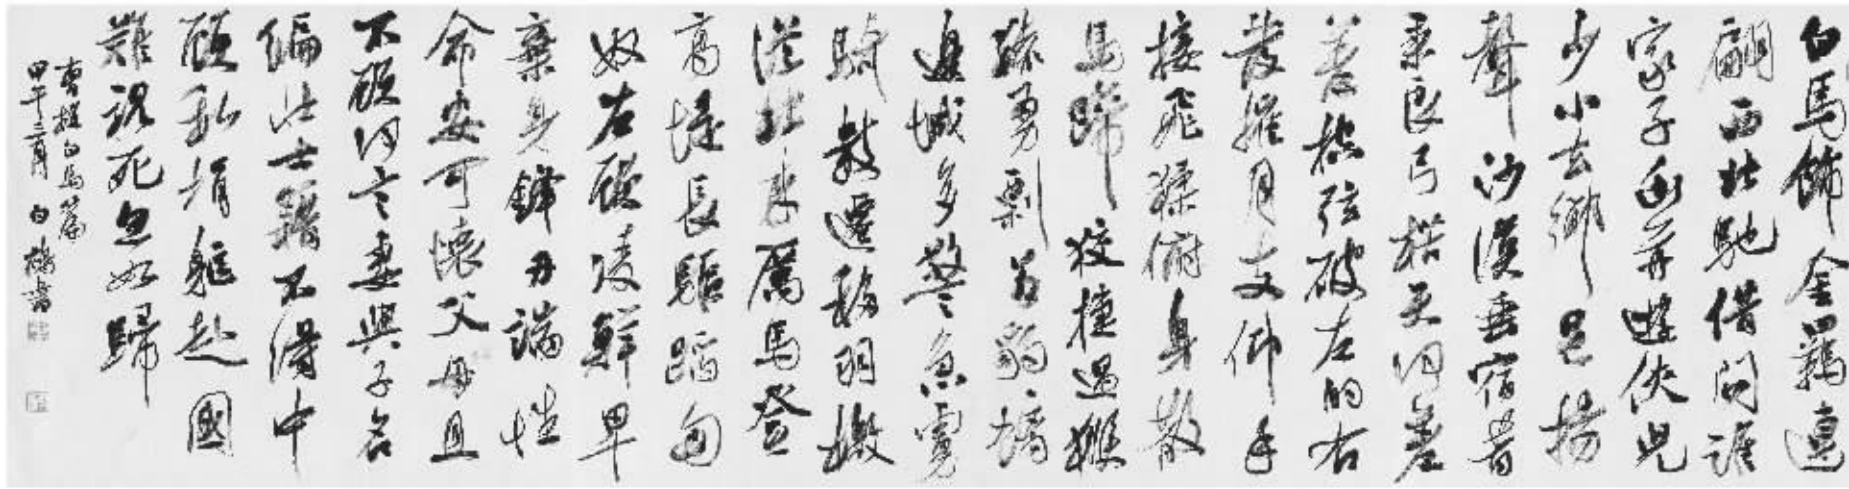 白馬飾金羈連
翩西北馳借問誰
家子幽并遊俠兒
少小去鄉邑揚
聲沙漠垂宿昔
秉良弓楛矢何參
差控弦破左的右
發摧月支仰手
接飛猱俯身散
馬蹄狡捷過猴
猿勇剽若豹螭
邊城多警急虜
騎數遷移羽檄
從北來厲馬登
高堤長驅蹈匈
奴左顧陵鮮卑
棄身鋒刃端性
命安可懷父母且
不顧何言妻與子名
編壯士籍不得中
顧私捐軀赴國
難視死忽如歸
曹植白馬篇
甲午二月 白書